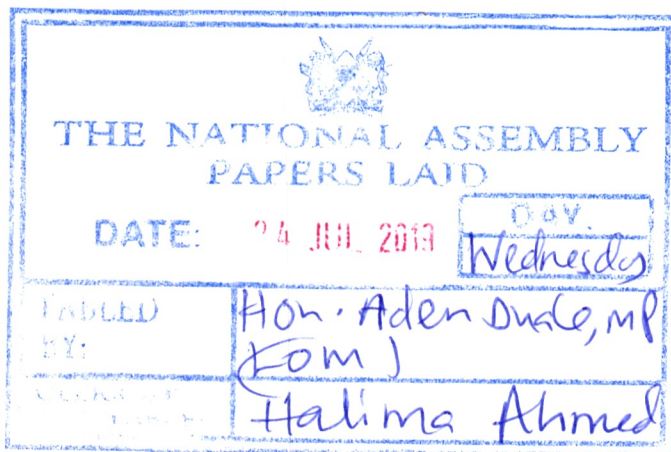 THE NATIONAL ASSEMBLY
PAPERS LAID
DATE: 24 JUL 2019
DAY.
Wednesday
TABLED
BY:
Hon. Aden Duale, MP
(LOM)
Halima Ahmed